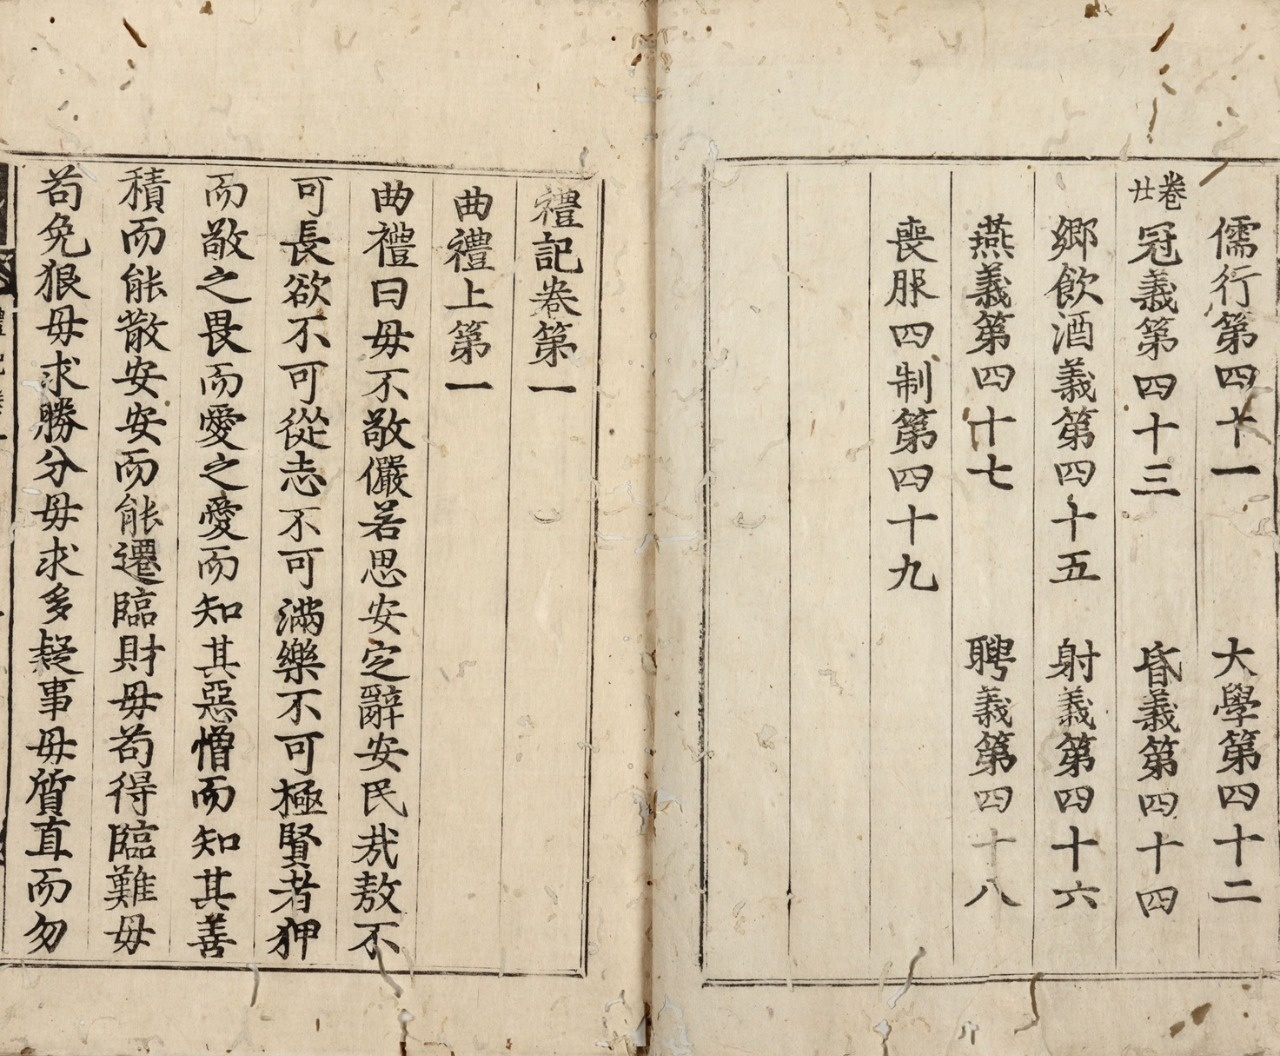 儒行第四十一 大學第四十二
卷廿 冠義第四十三 昏義第四十四
鄉飮酒義第四十五 射義第四十六
燕義第四十七 聘義第四十八
喪服四制第四十九
禮記卷第一
曲禮上第一
曲禮曰毋不敬儼若思安定辭安民哉敖不
可長欲不可從志不可滿樂不可極賢者狎
而敬之畏而愛之愛而知其惡憎而知其善
積而能散安安而能遷臨財毋苟得臨難毋
苟免狠毋求勝分毋求多疑事毋質直而勿